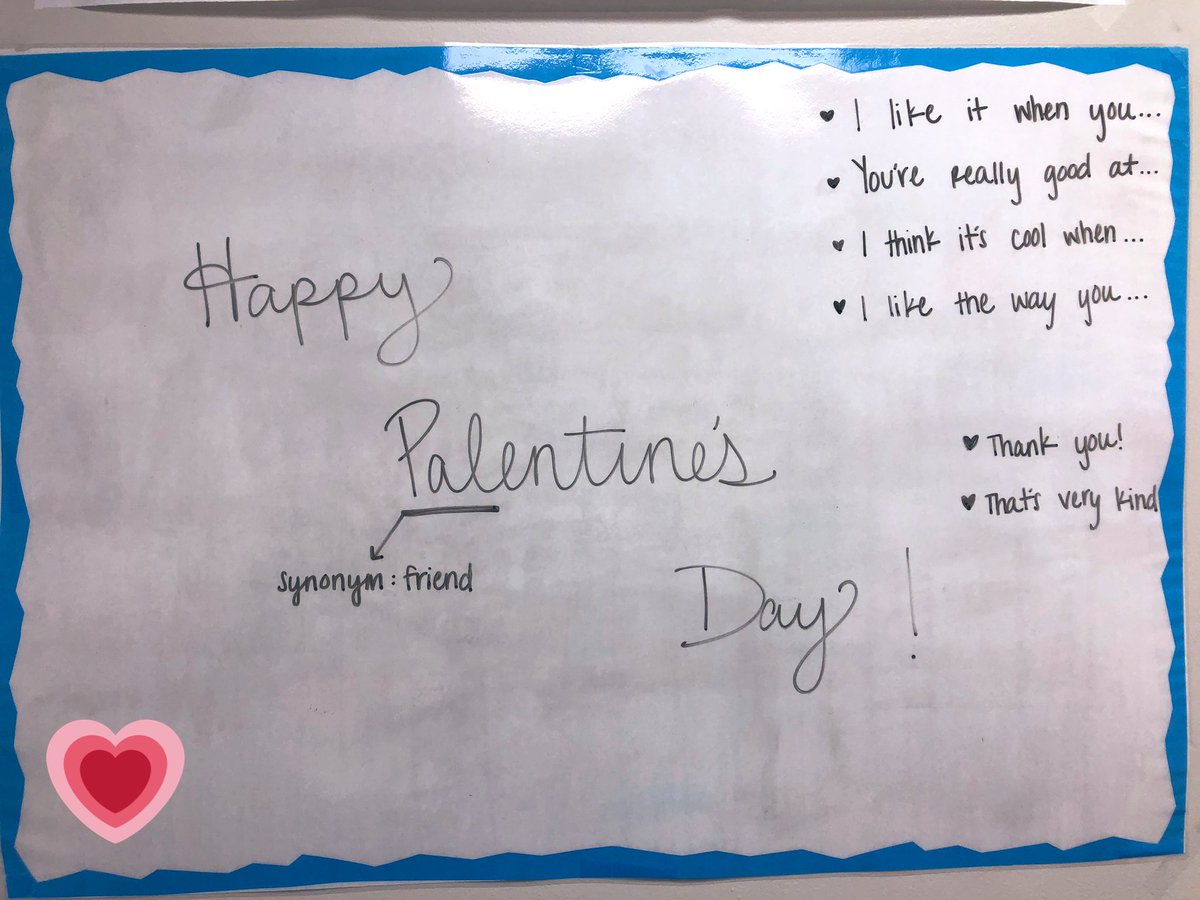 Happy
Palentine's
synonym: friend
Day!
I like it when you...
You're really good at...
I think it's cool when...
I like the way you...
Thank you!
That's very kind